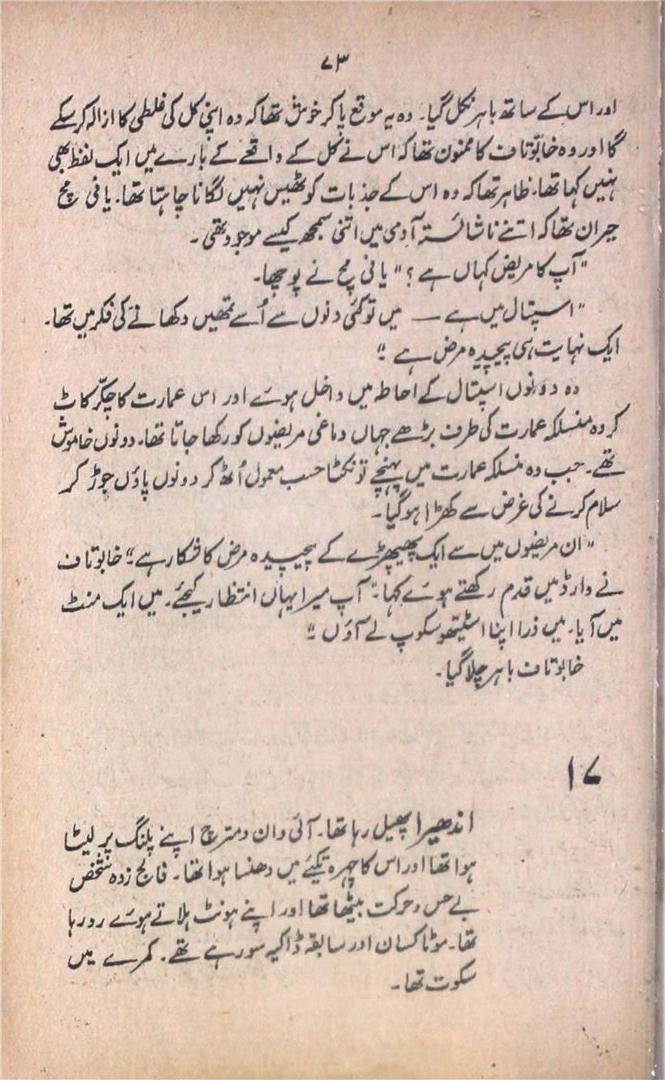 ۷۳
اور اس کے ساتھ باہر نکل گیا۔ وہ یہ موقع پا کر خوش تھا کہ وہ اپنی کل کی غلطی کا ازالہ کر سکے
گا اور وہ خابوتاف کا ممنون تھا کہ اس نے کل کے واقعے کے بارے میں ایک لفظ بھی
نہیں کہا تھا۔ ظاہر تھا کہ وہ اس کے جذبات کو ٹھیس نہیں لگانا چاہتا تھا۔ یافی مچ
حیران تھا کہ اتنے ناشائستہ آدمی میں اتنی سمجھ کیسے موجود تھی۔
"آپ کا مریض کہاں ہے؟" یافی مچ نے پوچھا۔
"اسپتال میں ہے — میں تو کئی دنوں سے اُسے تمھیں دکھانے کی فکر میں تھا۔
ایک نہایت ہی پیچیدہ مرض ہے۔"
وہ دونوں اسپتال کے احاطہ میں داخل ہوئے اور اس عمارت کا چکّر کاٹ
کر وہ منسلکہ عمارت کی طرف بڑھے جہاں دماغی مریضوں کو رکھا جاتا تھا۔ دونوں خاموش
تھے۔ جب وہ منسلکہ عمارت میں پہنچے تو نکٹا حسب معمول اُٹھ کر دونوں پاؤں جوڑ کر
سلام کرنے کی غرض سے کھڑا ہو گیا۔
"ان مریضوں میں سے ایک پھیپھڑے کے پیچیدہ مرض کا شکار ہے" خابوتاف
نے وارڈ میں قدم رکھتے ہوئے کہا۔ "آپ میرا یہاں انتظار کیجئے۔ میں ایک منٹ
میں آیا۔ میں ذرا اپنا اسٹیتھوسکوپ لے آؤں۔"
خابوتاف باہر چلا گیا۔
۱۷
اندھیرا پھیل رہا تھا۔ آئی وان دمترچ اپنے پلنگ پر لیٹا
ہوا تھا اور اس کا چہرہ تکیئے میں دھنسا ہوا تھا۔ فالج زدہ شخص
بے حس و حرکت بیٹھا تھا اور اپنے ہونٹ ہلاتے ہوئے رو رہا
تھا۔ موٹا کسان اور سابقہ ڈاکیہ سو رہے تھے۔ کمرے میں
سکوت تھا۔